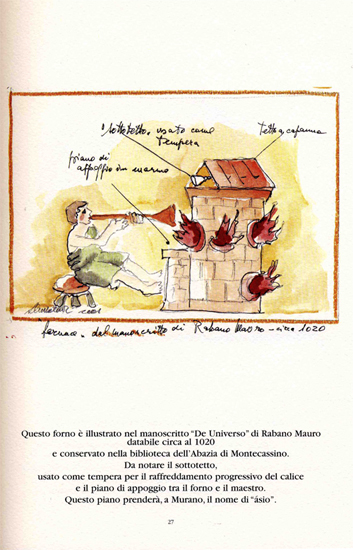 sottotetto, usato come
tempera
tetto a capanna
piano di
appoggio in marmo
2001
fornace. dal manoscritto di Rabano Mauro - circa 1020
Questo forno è illustrato nel manoscritto "De Universo" di Rabano Mauro
databile circa al 1020
e conservato nella biblioteca dell'Abazia di Montecassino.
Da notare il sottotetto,
usato come tempera per il raffreddamento progressivo del calice
e il piano di appoggio tra il forno e il maestro.
Questo piano prenderà, a Murano, il nome di "ásio".
27